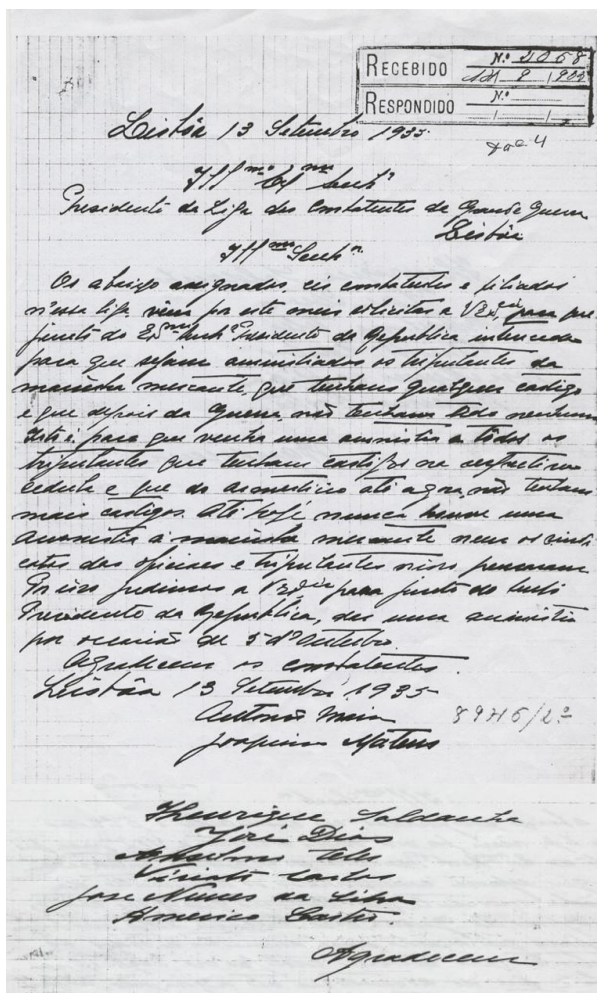 RECEBIDO Nº 2068
9
RESPONDIDO Nº
Lisbôa 13 Setembro 1935
Illmo Exmo Senhr
Presidente da Liga dos Combatentes da Grande Guerra
Lisbôa
Illmo Senhr
Os abaixo assignados, combatentes e filiados
n'essa Liga vem por este meio solicitar a V Excia para que
junto do Exmo Senhr Presidente da Republica interceda
para que sejam amnistiados os tripulantes da
marinha mercante, que tenham qualquer castigo
e que depois da Guerra, não tenham tido nenhum
Isto é, para que venha uma amnistia a tôdos os
tripulantes que tenham castigos na respectiva
cedula e que do armisticio até agora não tenham
mais castigos. Até hoje nunca houve uma
amnistia á marinha mercante nem os sindi
catos dos oficiaes e tripulantes nisso pensaram
Por isso pedimos a V Excia para junto do Senhr
Presidente da Republica, dar uma amnistia
por occasião de 5 d'Outubro.
Agradecem os combatentes.
Lisbôa 13 Setembro 1935
Antonio Maia
8946/2ª
Joaquim Mateus
Henrique Saldanha
José Dias
Anselmo Teles
Viriato Santos
Jose Nunes da Silva
Americo Castro.
Agradecem